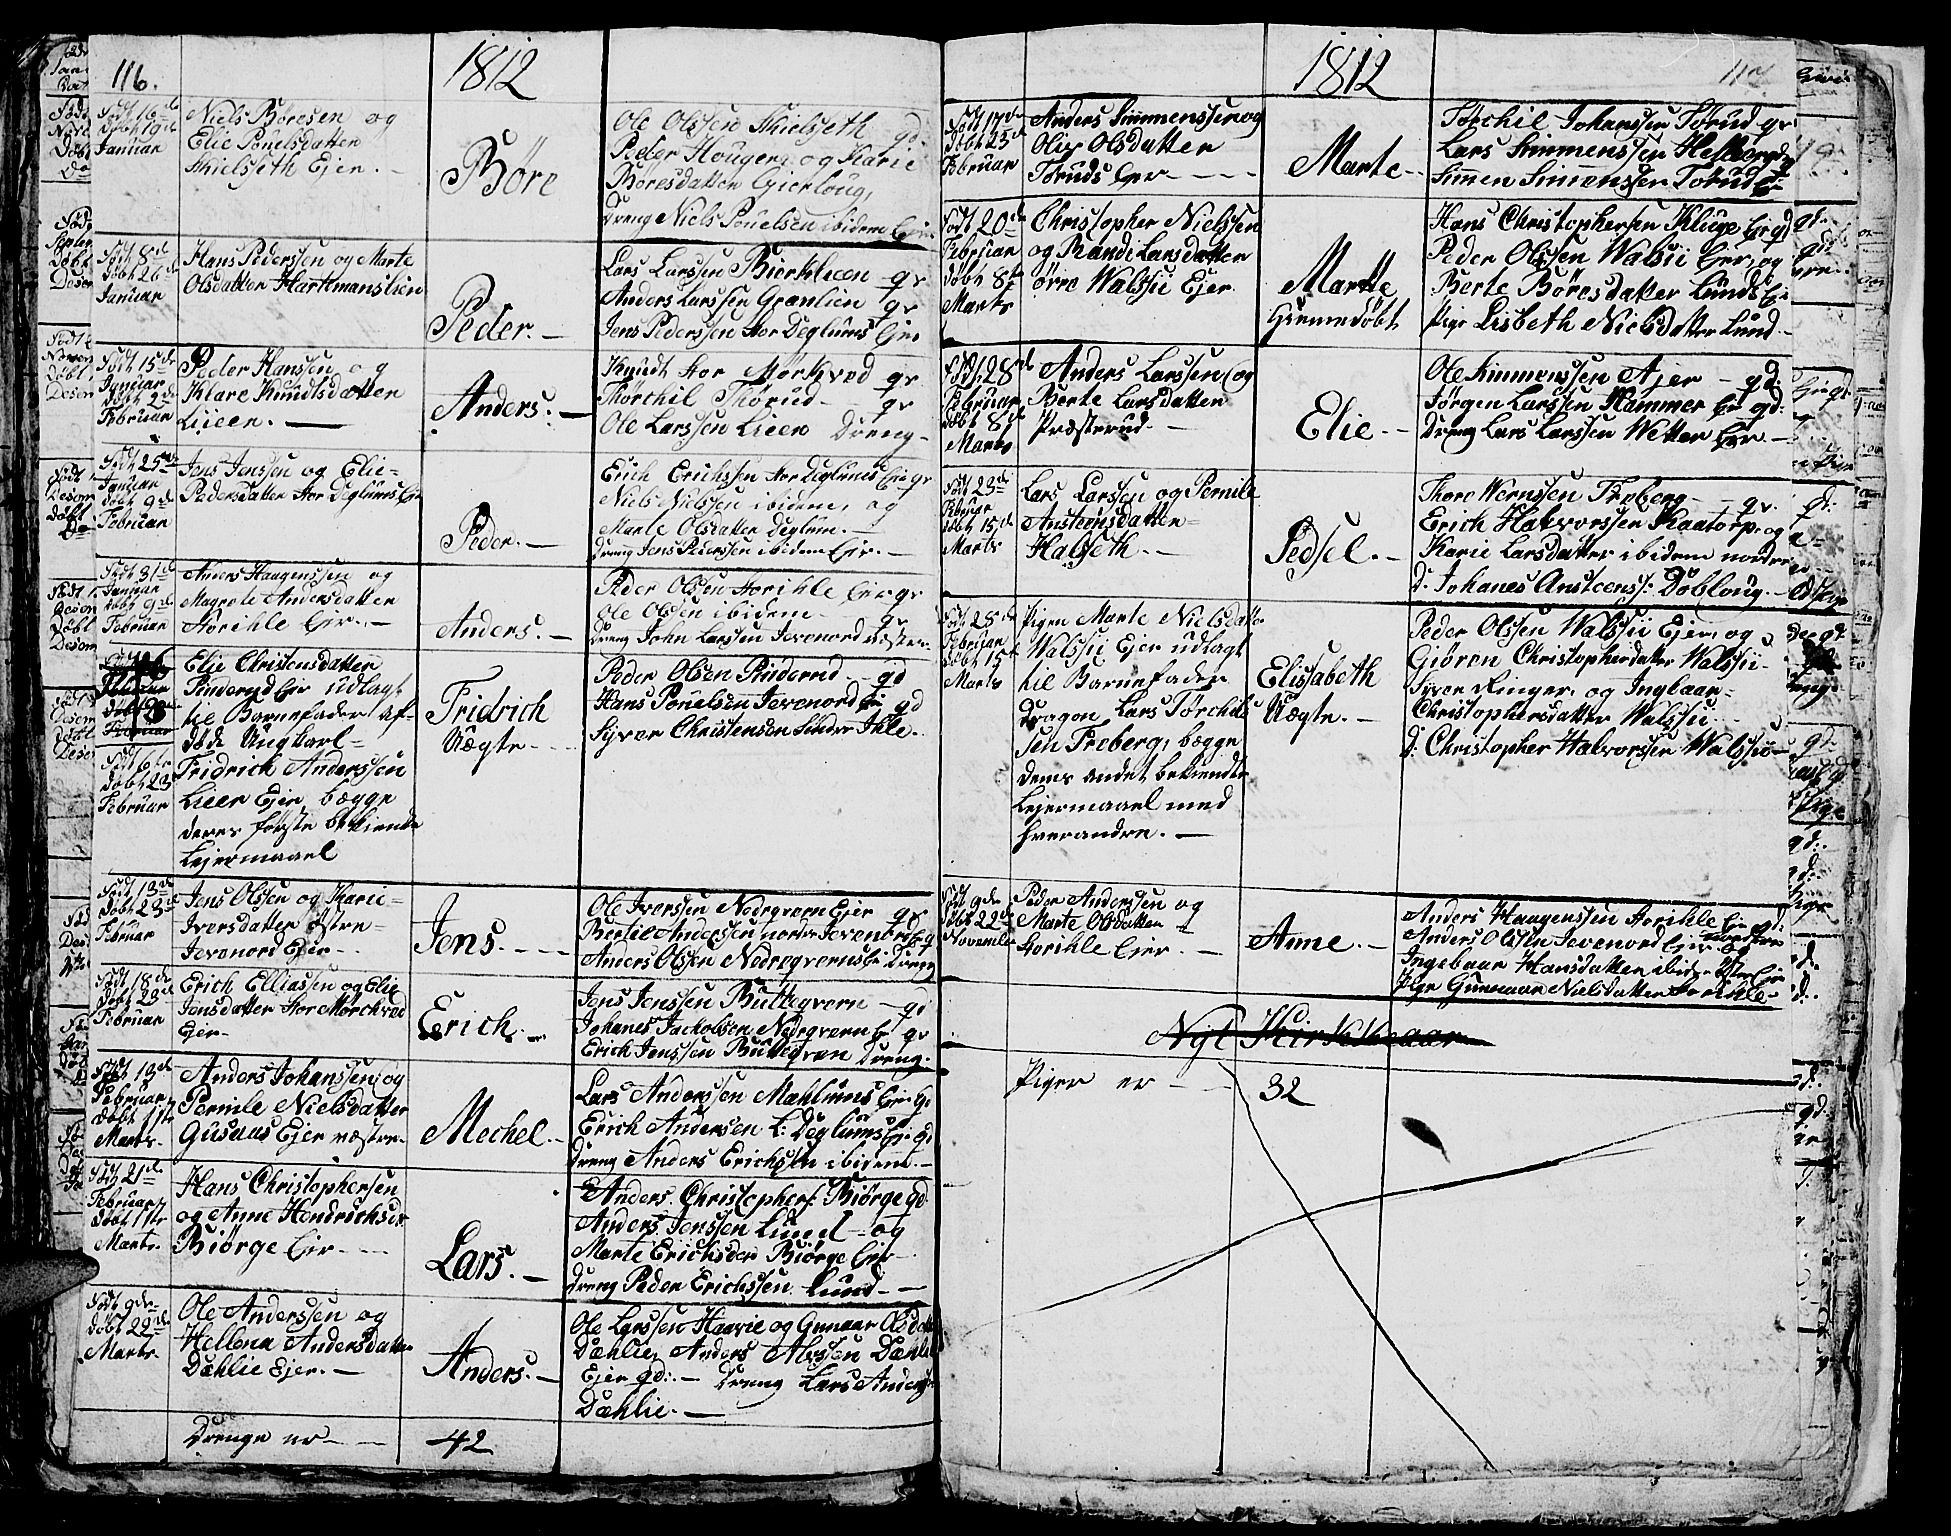 116.
1812
Født 16de
Døbt 19de
Januar
Niels Børesen og
Elie Pouelsdatter
Skielseth Ejer. -
Børe
Ole Olssen Skielseth gd
Peder Hougen og Karie
Børesdatter Gierloug,
Dreng Niels Pouelsen ibidem Eje
Født 8de
Døbt 26de
Januar
Hans Pederssen og Marte
Olsdatter Hartmanslien
Peder. -
Lars Larssen Bierklieen - gr
Anders Larssen Grønlien gr
Jens Pederssen Stor Deglums Eje
Født 15de
Januar
Døbt 2de
Februar
Peder Hanssen og
Klare Knudtsdatter
Lieen. -
Anders. -
Knudt Stor Mørkved gr
Thorchil Thorud - gr
Ole Larssen Lieen Dreng -
Født 25de
Januar
Døbt 9de
Februar
Jens Jenssen og Elie =
Pedersdatter Stor Deglums Eje
Peder. -
Erich Erichssen Stor Deglums Eje gr
Niels Nielssen ibidem, og
Marte Olsdatter Deglum. -
Dreng Jens Pederssen ibidem Eje. -
Født 31te
Januar
Døbt 9de
Februar
Anders Haagenssen og
Magrete Andersdatter
Storihle Eje. -
Anders. -
Peder Olssen Storihle Eje gr
Ole Olssen ibidem - gr
Dreng John Larssen Jevenord Væstre -
Februar
Født 6te
Døbt 23
Februar
Elie Christensdatter
Rinderud Eje udlagt
til Barnefader af-
døde Ungkarl =
Fridrich Anderssen
Lieen Ejer, begge
deres første bekiendte
Lejermaael
Fridrich
Uægte -
Peder Olsen Rinderud - gd
Hans Pouelsen Jevenord Ej gd
Syver Christensen Sønder Ihle.
Født 13de
Døbt 23de
Februar
Jens Olssen og Karie =
Iversdatter Østre =
Jevenord Ejer -
Jens. - -
Ole Iverssen Nedrqvern Ejer gr
Bertil Anderssen nordre Jevenord Ej g
Anders Olssen Nedreqverns Ej Dreng
Født 18de
Døbt 23de
Februar
Erich Elliassen og Elie
Jensdatter Stor Mørchved
Ejer -
Erich. -
Jens Jenssen Butteqvern - gd
Johanes Jackobsen Nedrqvern Ej gr
Erich Jenssen Butteqvern Dreng.
Født 13de
Februar
Døbt 1ste
Marts.
Anders Johanssen, og
Pernile Nielsdatter
Gusaas Ejer væstre -
Mechel. -
Lars Anderssen Mæhlums Eje gd
Erich Andersen L: Deglums Ej gd
Dreng Anders Erichsen ibidem. -
Født 21de
Februar
Døbt 1ste
Marts.
Hans Christophersen
og Anne Hendrichsdr
Biørge Eje - -
Lars. -
Anders Christophers: Biørge gd
Anders Jenssen Lund - og
Marte Erichsdr Biørge Eje
Dreng Peder Erichssen Lund - -
Født 9de
Døbt 29de
Marts.
Ole Anderssen og
Hellena Andersdatter
Dæhlie Ejer. -
Anders. -
Ole Larssen Haavie og Gunaar Olsdatt
Dæhlie, Anders Alfssen Dæhlie
Ejer gd. - Dreng Lars Anders
Dæhlie. -
Drenge er - - 42
1812
Født 17de
Døbt 23de
Februar
Anders Simmenssen og
Olia Olsdatter
Toruds Eje - - -
Marte -
Torchil Johanssen Torud gr
Lars Simmenssen
Simen Simenssen Torud Eje
Født 20de
Februar
Døbt 8de
Marts
Christopher Nielssen
og Randi Larsdatter
øvre Walssii Ejer.
Marte
Hiemmedøbt
Hans Christophersen Kluge Eje gd
Peder Olssen Walsii Eje, og
Berte Børesdatter Lunds Eje
Pige Lisbeth Nielsdatter Lund -
Født 28de
Februar
Døbt 8de
Marts
Anders Larssen, og
Berte Larsdatter
Præsterud. -
Elie. -
Ole Simmenssen Ajer - gd.
Jørgen Larssen Hammer Ej gd.
Dreng Lars Larssen Wetten Eje -
Født 23de
Februar
Døbt 15de
Marts
Lars Larssen og Pernile
Austensdatter =
Halseth. -
Sedsel. -
Thore Wernssen Freberg - gr.
Erich Halvorssen Kaatorp, og
Karie Larsdatter ibidem nordre
D: Johanes Ansteenss: Dobloug. -
Født 28de
Februar
Døbt 15de
Marts
Pigen Marte Nielsdatter
Walssii Ejer udlagt
til Barnefader
Dragon Lars Torchils
sen Freberg, begge
deres andet bekiendte
Lejermaael med
hverandre. -
Elissabeth
Uægte. -
Peder Olssen Walssii Ejer, og
Giøren Christopherdatter Walssii -
Syver Ringer, og Ingbaar =
Christophersdatter Walssii.
D: Christopher Halvorssen Walssii -
Født 9de
Døbt 22de
November
Peder Anderssen og
Marte Olsdatter
Storihle Ejer. -
Anne. -
Anders Haagenssen Storihle Eje gd:
Anders Olssen Jevenord Ejer
Ingebaar Hansdatter ibidem Østre Eje
Pige Gunnaar Nielsdatter Storihle -
Nyt Kirkkeaar
Piger er - - 32